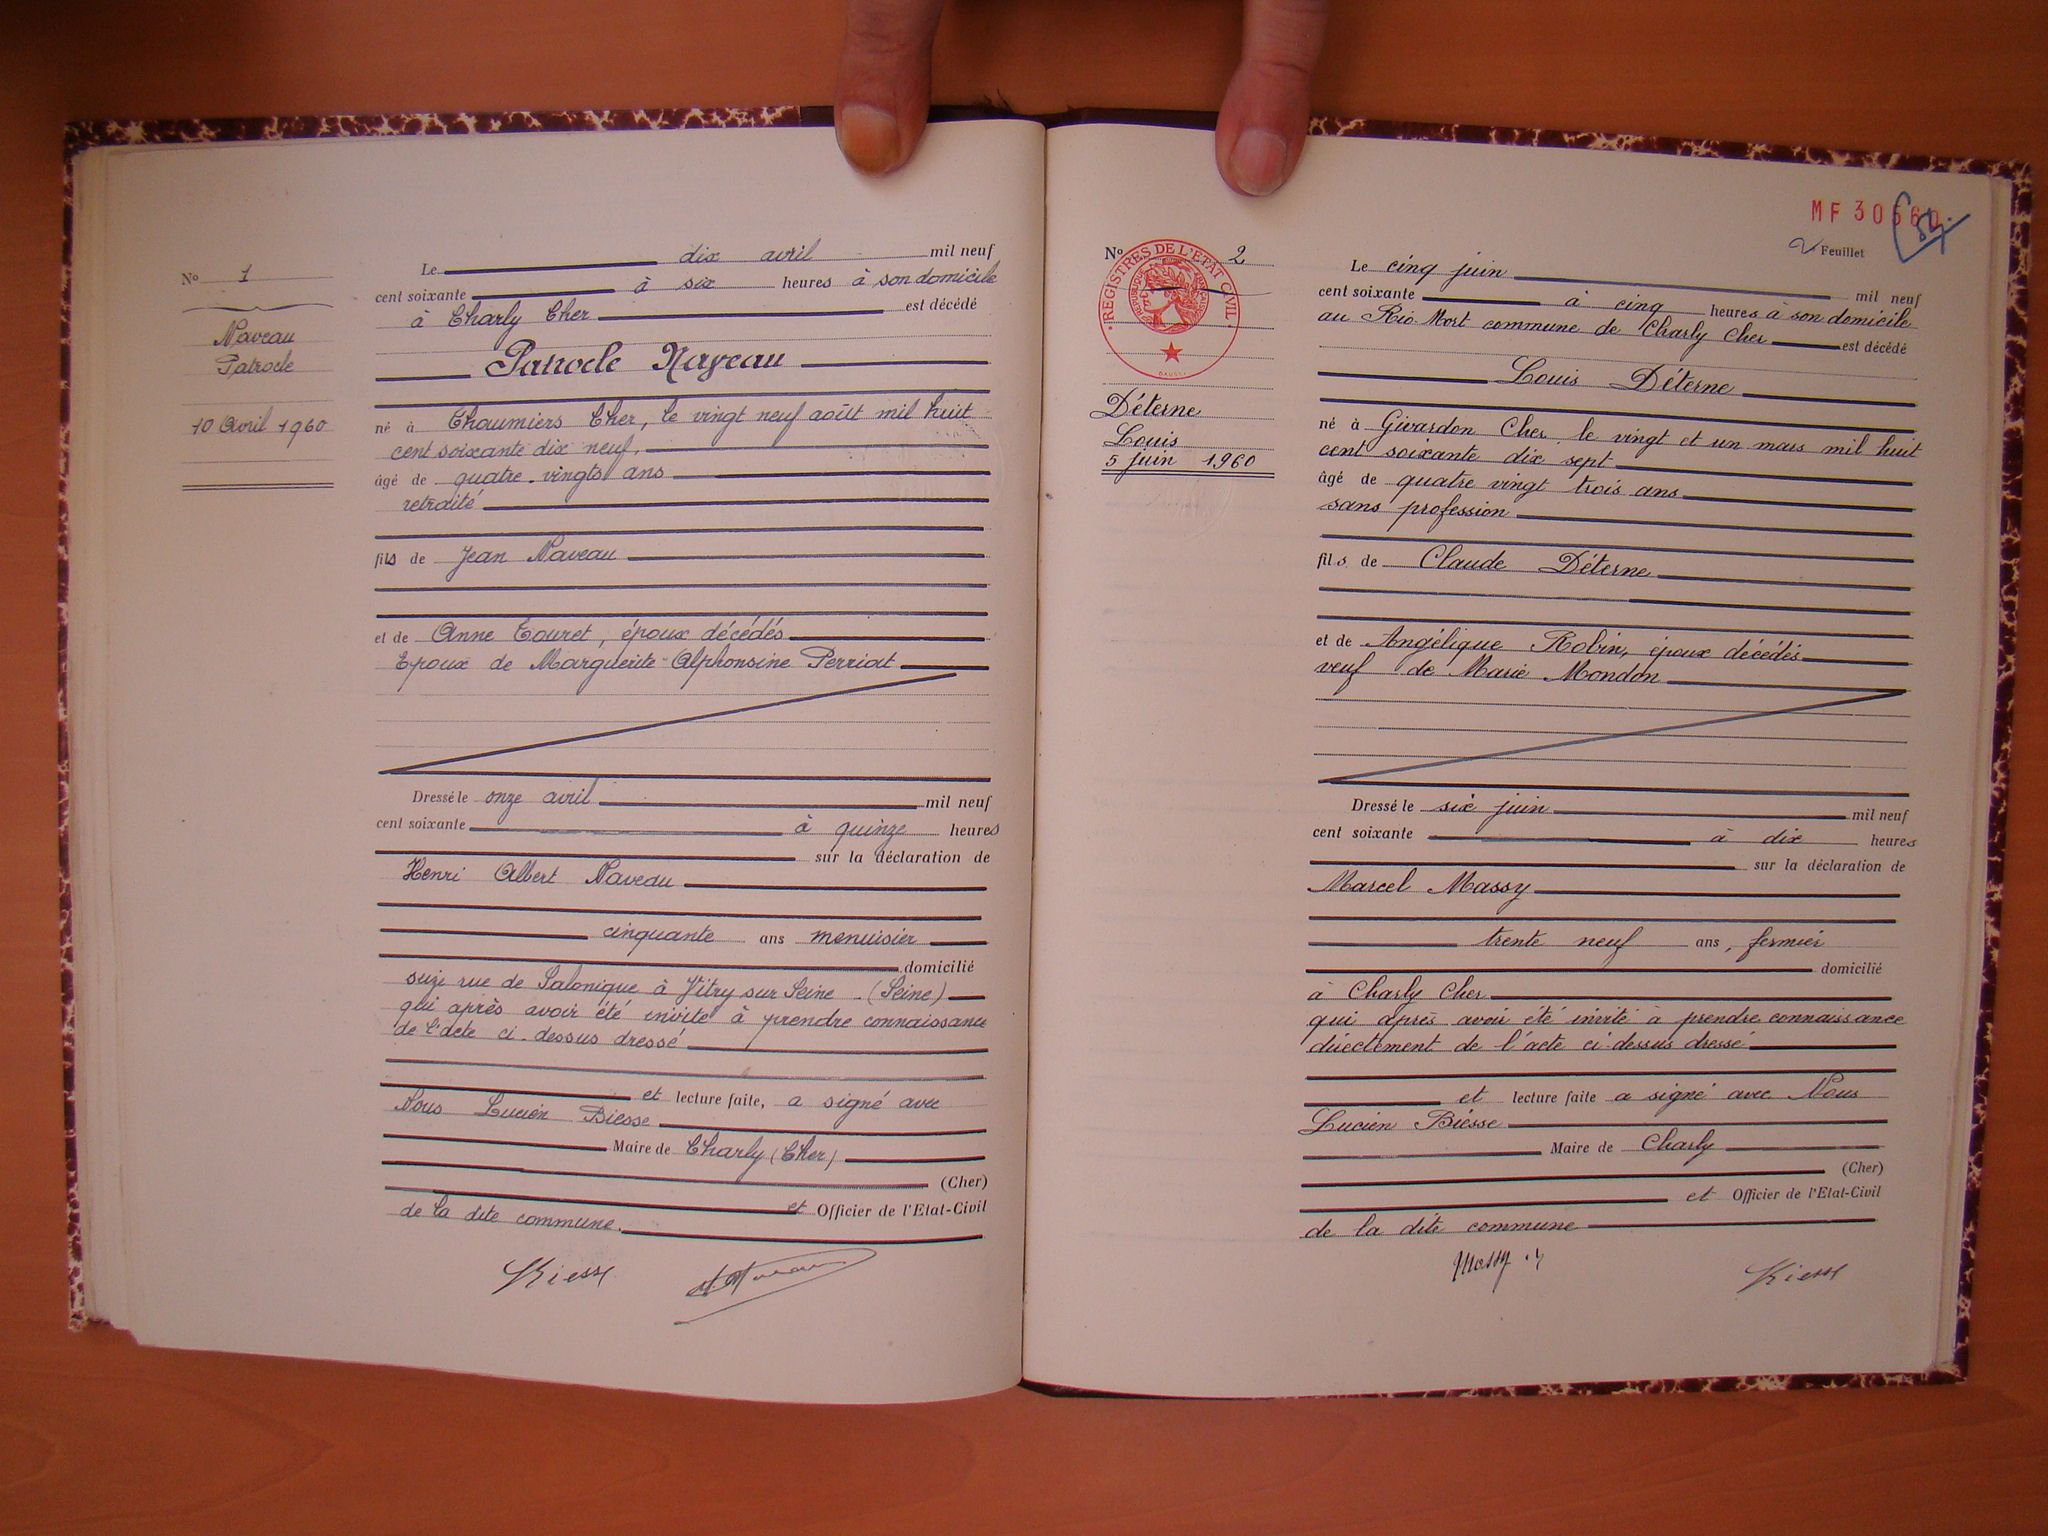 Nº 1
Naveau
Patrocle
10 Avril 1960
Le dix avril mil neuf
cent soixante à six heures à son domicile
à Charly Cher est décédé
Patrocle Naveau
né à Chaumiers Cher, le vingt neuf août mil huit
cent soixante dix neuf.
âgé de quatre-vingts ans
retraité
fils de Jean Naveau
et de Anne Touret, époux décédés
Epoux de Marguerite-Alphonsine Perriat
Dressé le onze avril mil neuf
cent soixante à quinze heures
sur la déclaration de
Henri Albert Naveau
cinquante ans menuisier
domicilié
rue de Salonique à Vitry sur Seine (Seine)
qui après avoir été invité à prendre connaissance
de l'acte ci-dessus dressé
et lecture faite, a signé avec
Nous Lucien Biesse
Maire de Charly (Cher)
(Cher)
et Officier de l'Etat-Civil
de la dite commune.
MF 30560
2 Feuillet
Nº 2
REGISTRES DE L'ETAT CIVIL
Déterne
Louis
5 juin 1960
Le cinq juin mil neuf
cent soixante à cinq heures à son domicile
au Rio-Mort commune de Charly Cher est décédé
Louis Déterne
né à Givardon Cher, le vingt et un mars mil huit
cent soixante dix sept
âgé de quatre vingt trois ans
sans profession
fils de Claude Déterne
et de Angélique Robin, époux décédés
veuf de Marie Mondon
Dressé le six juin mil neuf
cent soixante à dix heures
sur la déclaration de
Marcel Massy
trente neuf ans, fermier
domicilié
à Charly Cher
qui après avoir été invité à prendre connaissance
directement de l'acte ci-dessus dressé
et lecture faite a signé avec Nous
Lucien Biesse
Maire de Charly
(Cher)
et Officier de l'Etat-Civil
de la dite commune